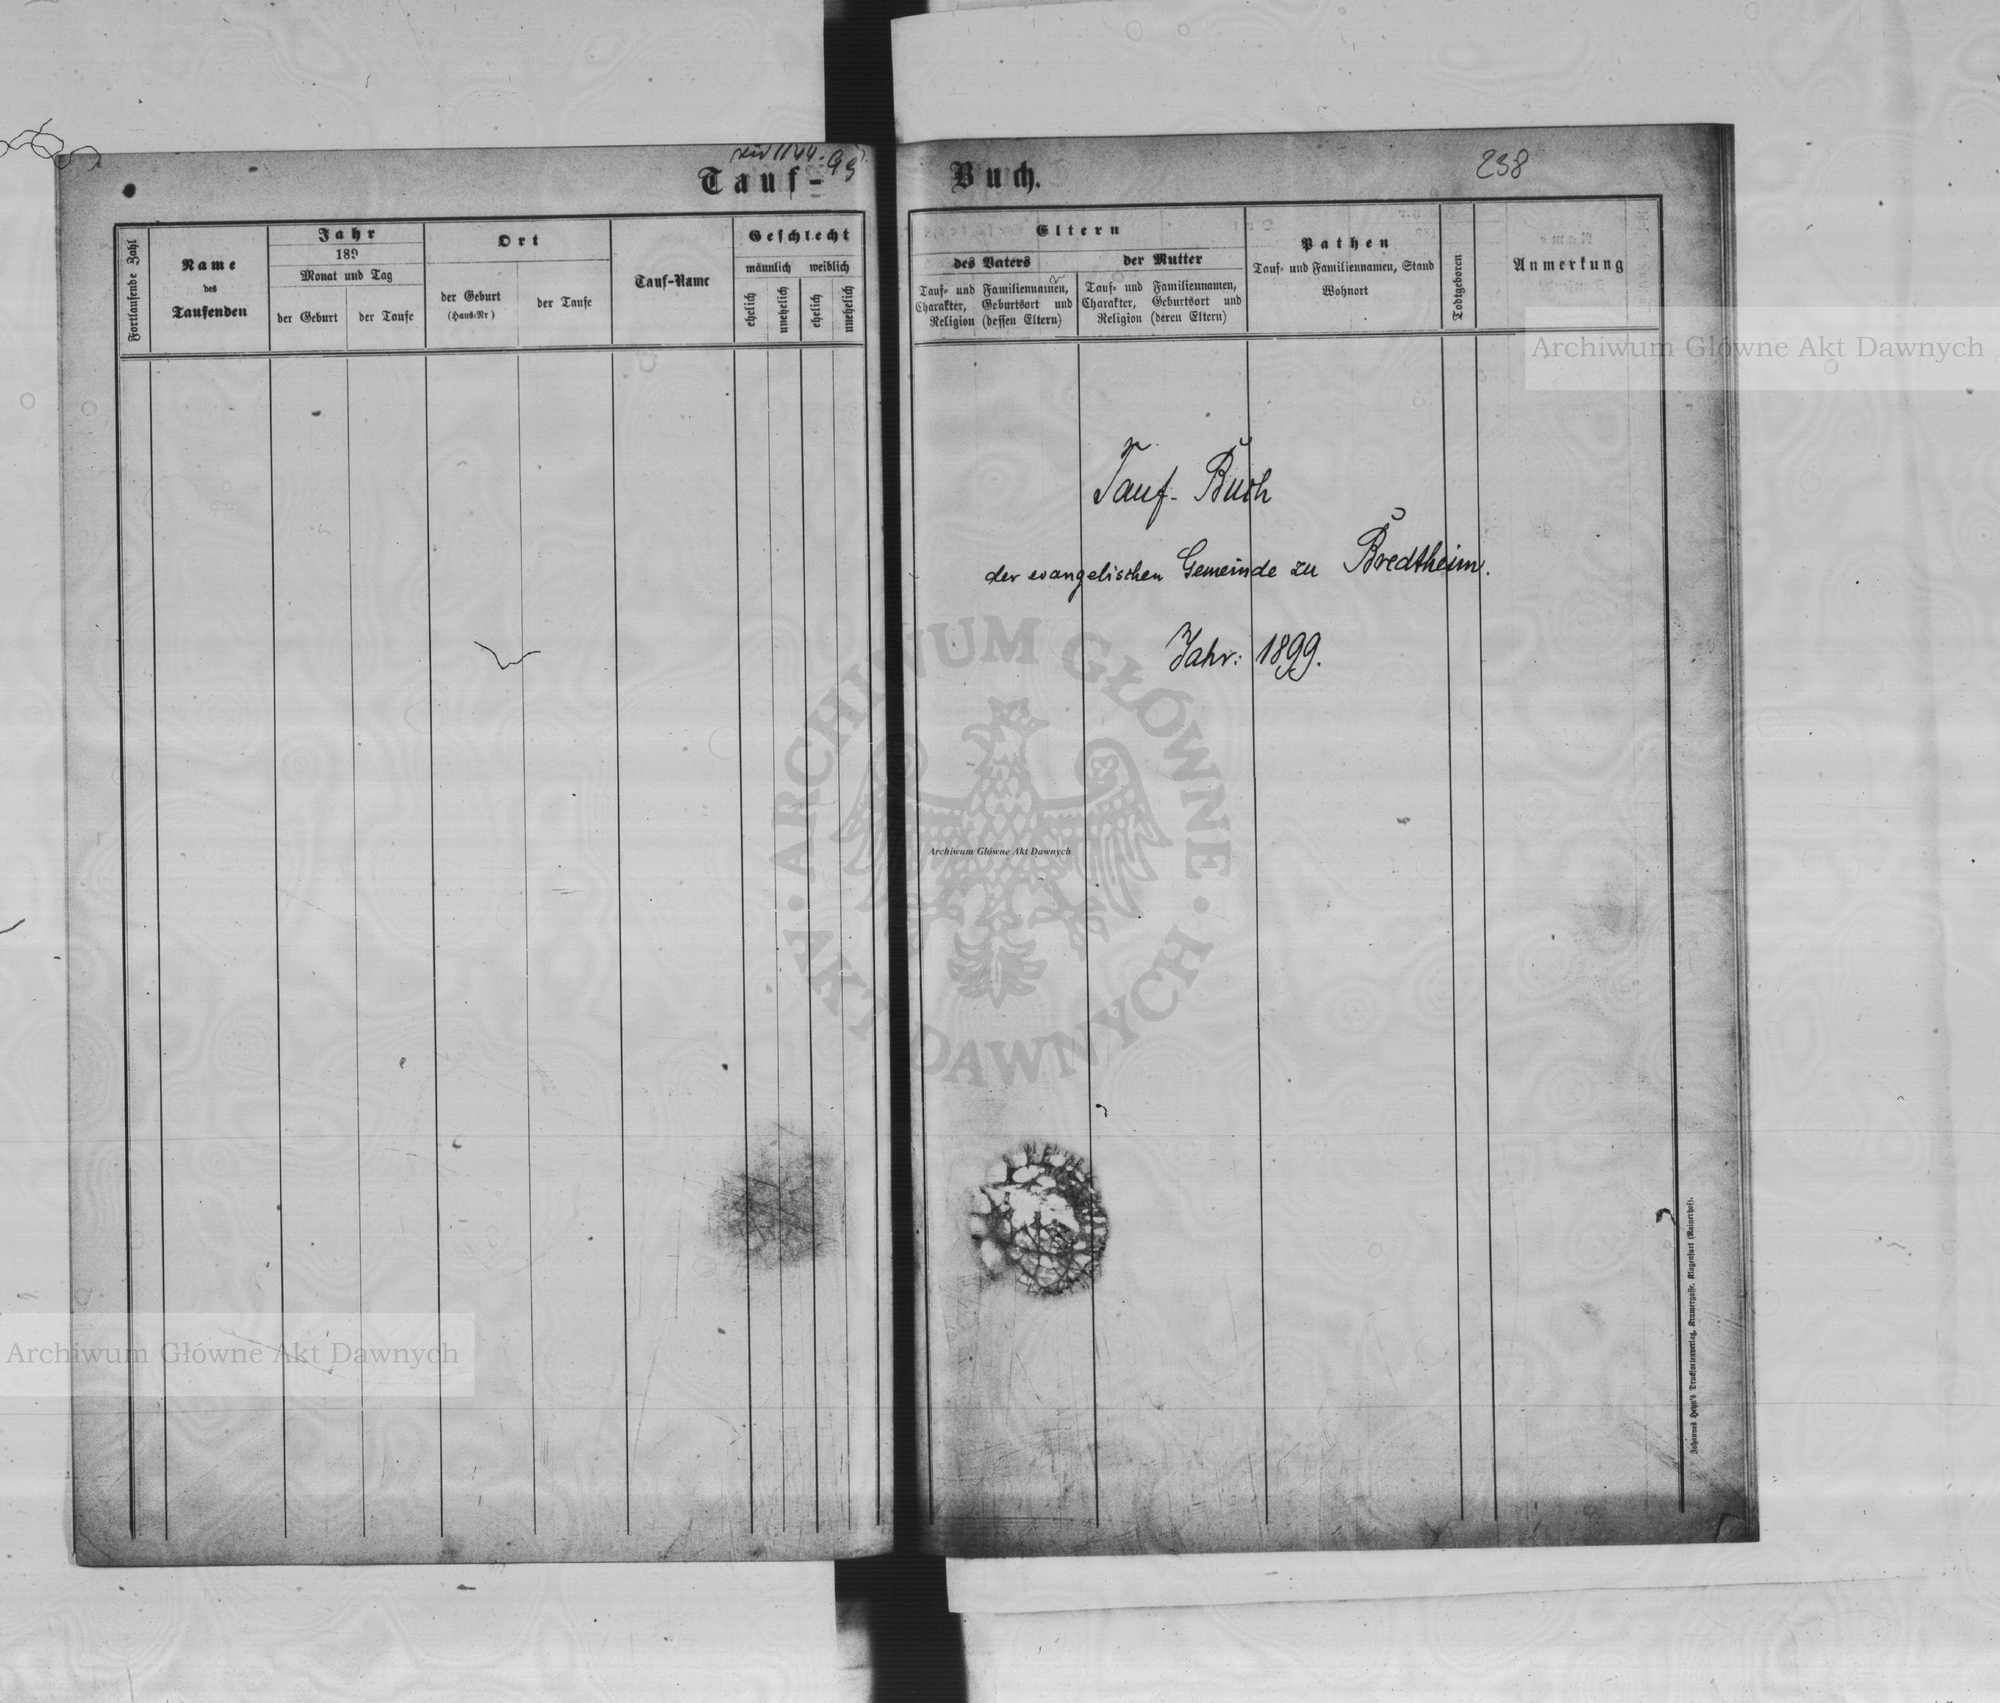 Tauf-
Fortlaufende Zahl
Name
des
Taufenden
Jahr
189
Monat und Tag
der Geburt
der Taufe
Ort
der Geburt
(Haus-Nr)
der Taufe
Tauf-Name
Geschlecht
männlich weiblich
ehelich
unehelich
ehelich
unehelich
Buch.
238
Eltern
des Vaters
Tauf- und Familiennamen,
Charakter, Geburtsort und
Religion (dessen Eltern)
der Mutter
Tauf- und Familiennamen,
Charakter, Geburtsort und
Religion (deren Eltern)
Pathen
Tauf- und Familiennamen, Stand
Wohnort
Todtgeboren
Anmerkung
Tauf-Buch
der evangelischen Gemeinde zu Bredtheim.
Jahr: 1899.
Johannes Heyn's Drucksortenverlag, Kramergasse, Klagenfurt (Rainerhof).
Archiwum Główne Akt Dawnych
ARCHIWUM GŁÓWNE
Archiwum Główne Akt Dawnych
AKT DAWNYCH
Archiwum Główne Akt Dawnych